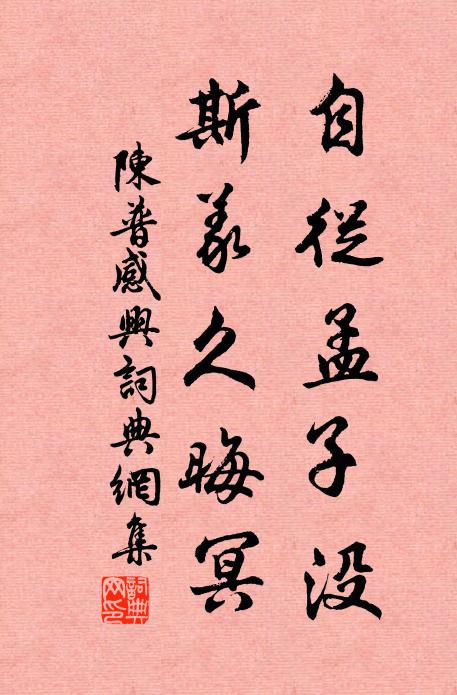 自從孟子没
斯義久晦冥
陳普感興詞典網集
詞典网印